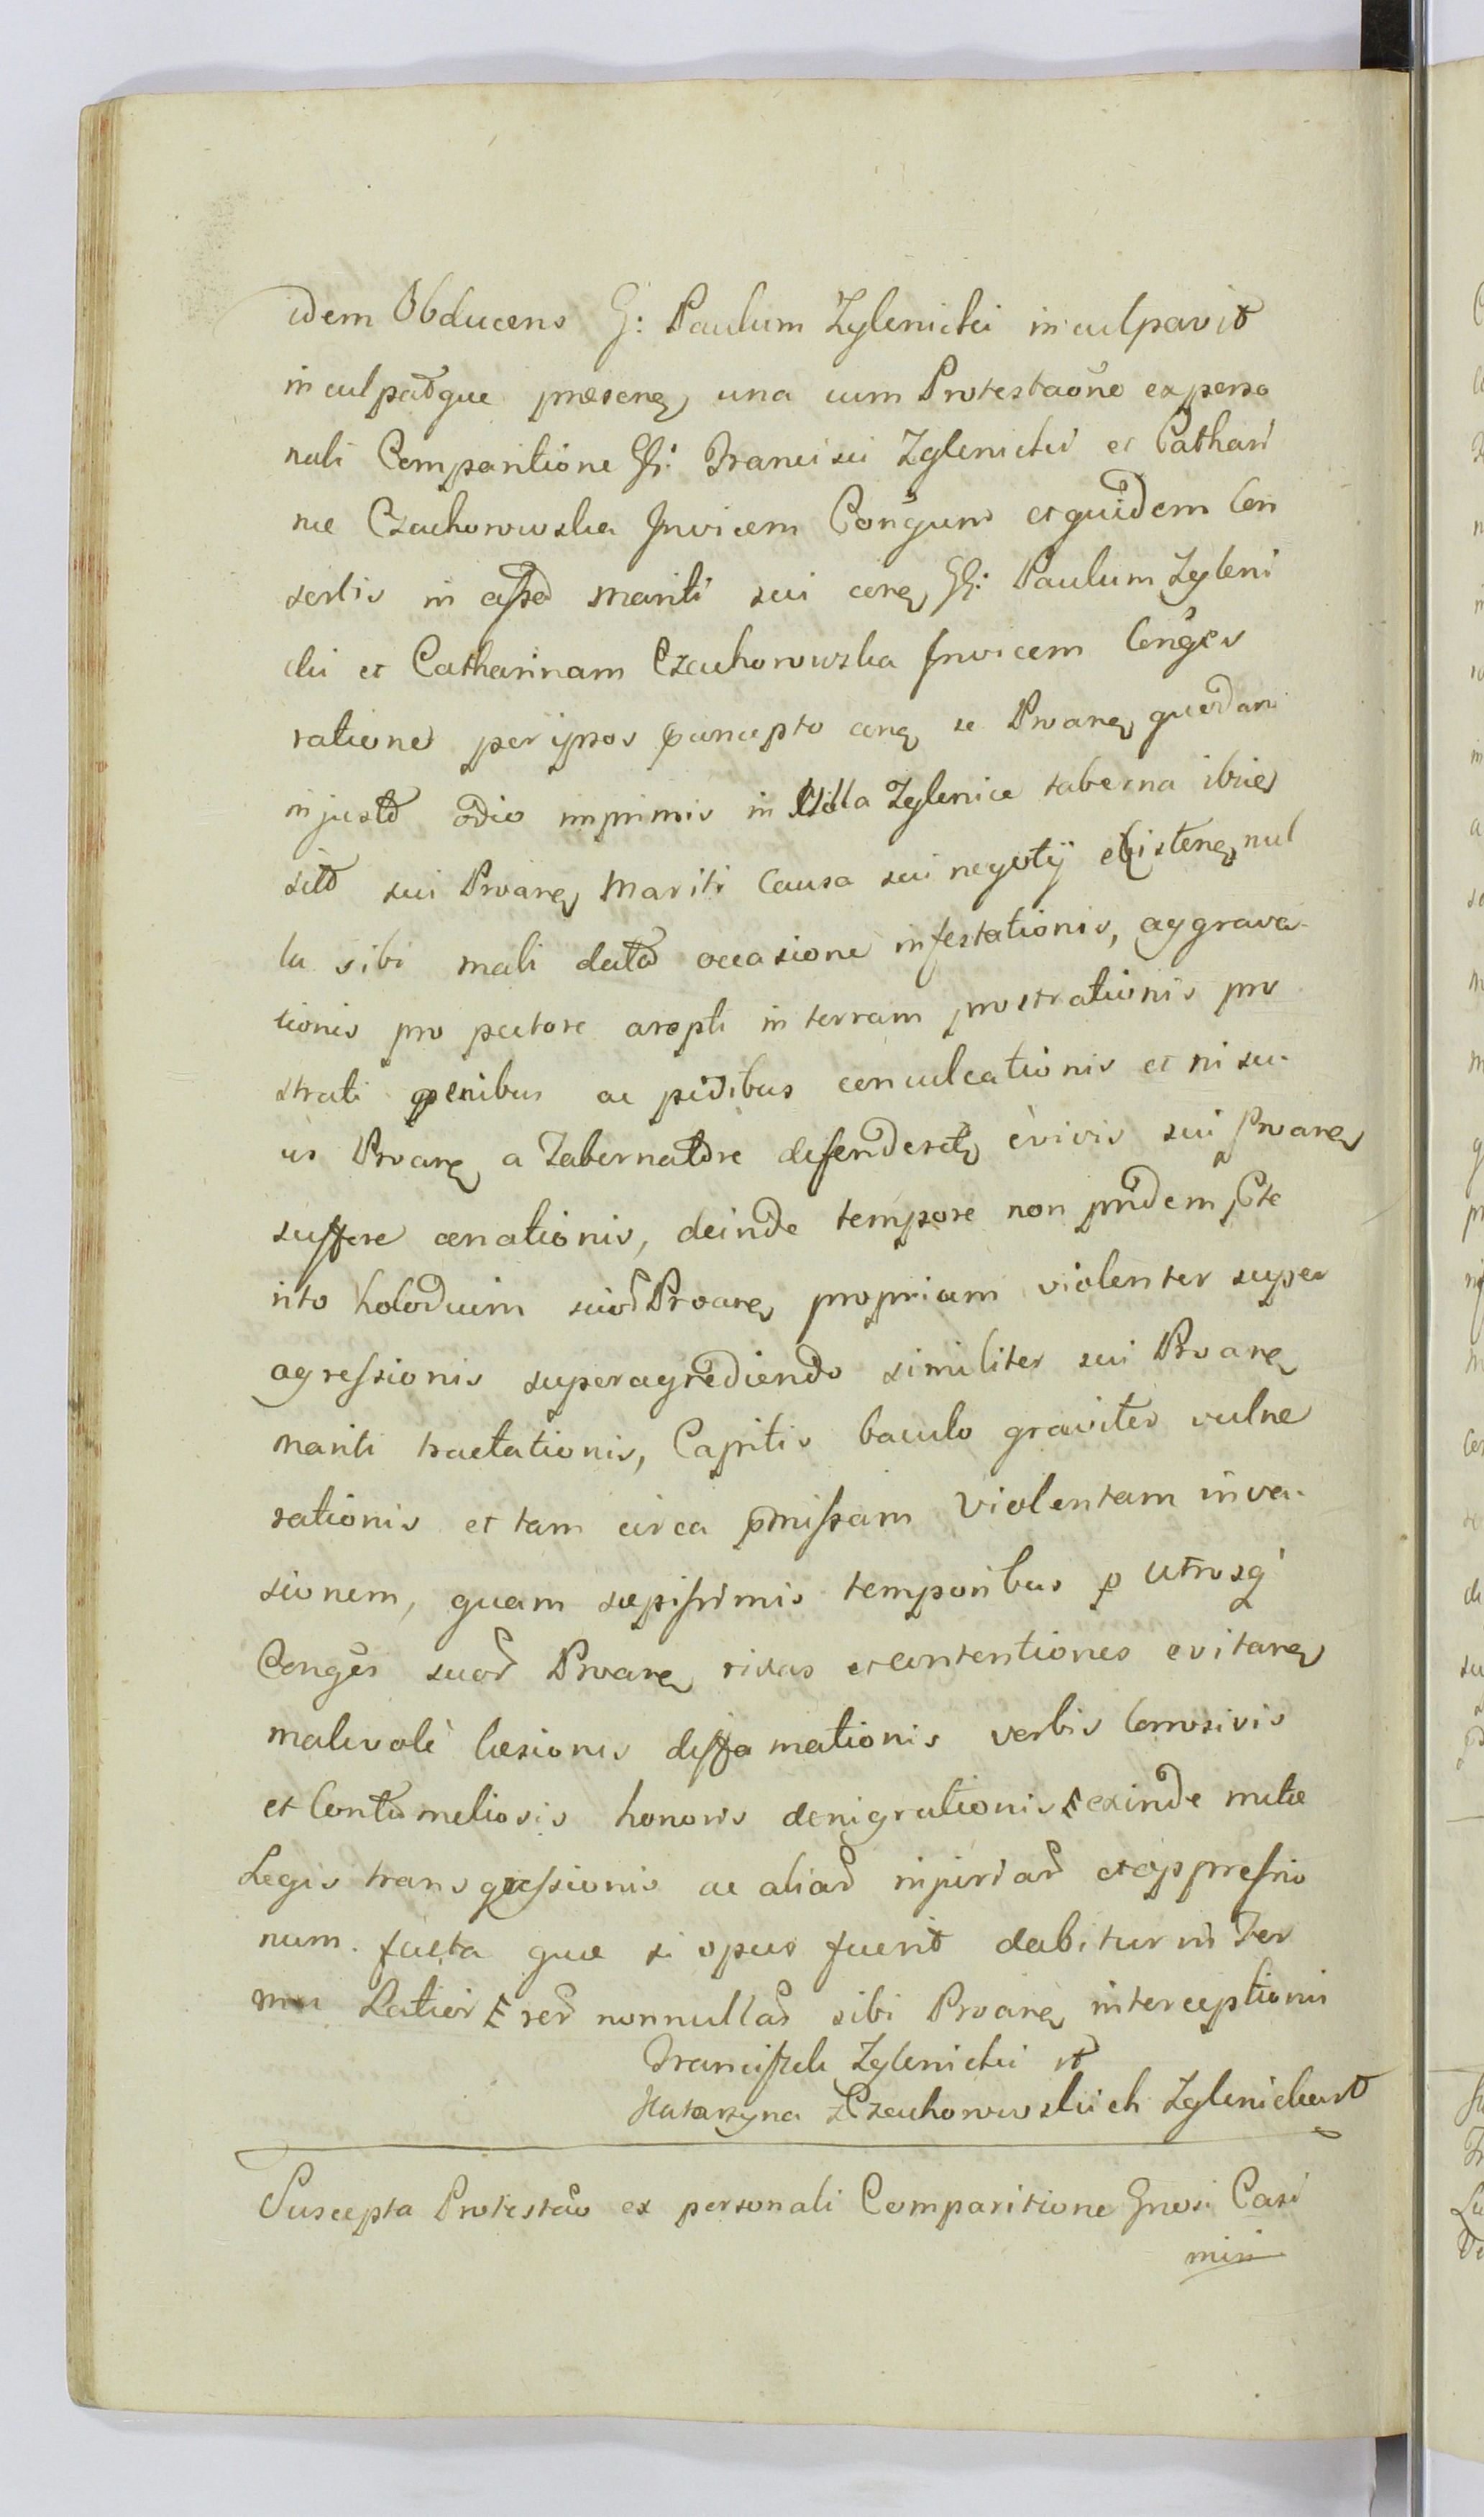 idem Obducens G: Paulum Zglenicki inculpavit
inculpatque praesenq una cum Protestaōne ex perso
nali Comparitione G: Francisci Zglenicki et Cathari
nae Czachorowska Invicem Conģum et quidem Con
sortis in assa Mariti sui conq G: Paulum Zgleni
cki et Catharinam Czachorowska Invicem Conģes
ratione per ipsos concepto conq se Proanq quodam
injusto odio imprimis in Villa Zglenice taberna ibiq
sito sui Proanq Mariti Causa sui negotij existenq nul
la sibi mali data occasione infestationis, aggrava-
tionis pro pectore arepti in terram prostrationis pro
strati genibus ac pedibus conculcationis et ni su-
us Proanq a Tabernatore defenderetq è vivis sui Proanq
suffere conationis, deinde tempore non pridem pte
rito holoduim suoR Proanq propriam violenter super
agressionis superagrediendo similiter sui Proanq
mariti tractationis, Capitis baculo graviter vulne
rationis et tam circa pmissam violentam inva-
sionem, quam saepissimis temporibus p utrosq
Conģes suoR Proanq rixas et contentiones evitanq
malevolè laesionis diffamationis verbis Corrosivis
et Contumeliosis honoris denigrationis exinde mitae
Legis transgressionis ac aliaR injuriaR et oppressio
num. facta quae si opus fuerit dabitur in Ter
mn Latior E reR nonnullaR sibi Proanq interceptionis
Franciszek Zglenicki st
Katarzyna z Czachorowskich Zglenicka st
Suscepta Protestaõ ex personali Comparitione Gnosi Casi
miri